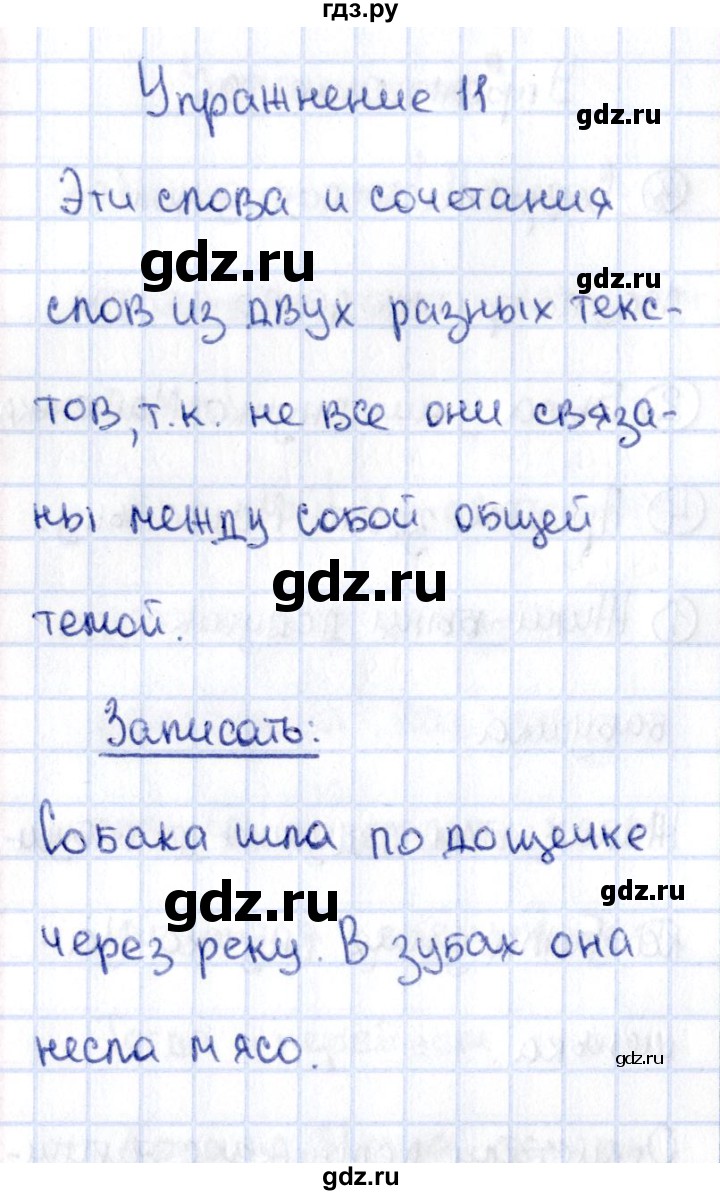 гдз.ру
Упражнение 11
gdz.ru
Эти слова и сочетания
gdz.ru
gdz.ru
слов из двух разных текс-
тов, т.к. не все они связа-
ны между собой общей
gdz.ru
темой.
Записать:
Собака шла по дощечке
gdz.ru
gdz.ru
через реку. В зубах она
несла мясо.
gdz.ru
gdz.ru